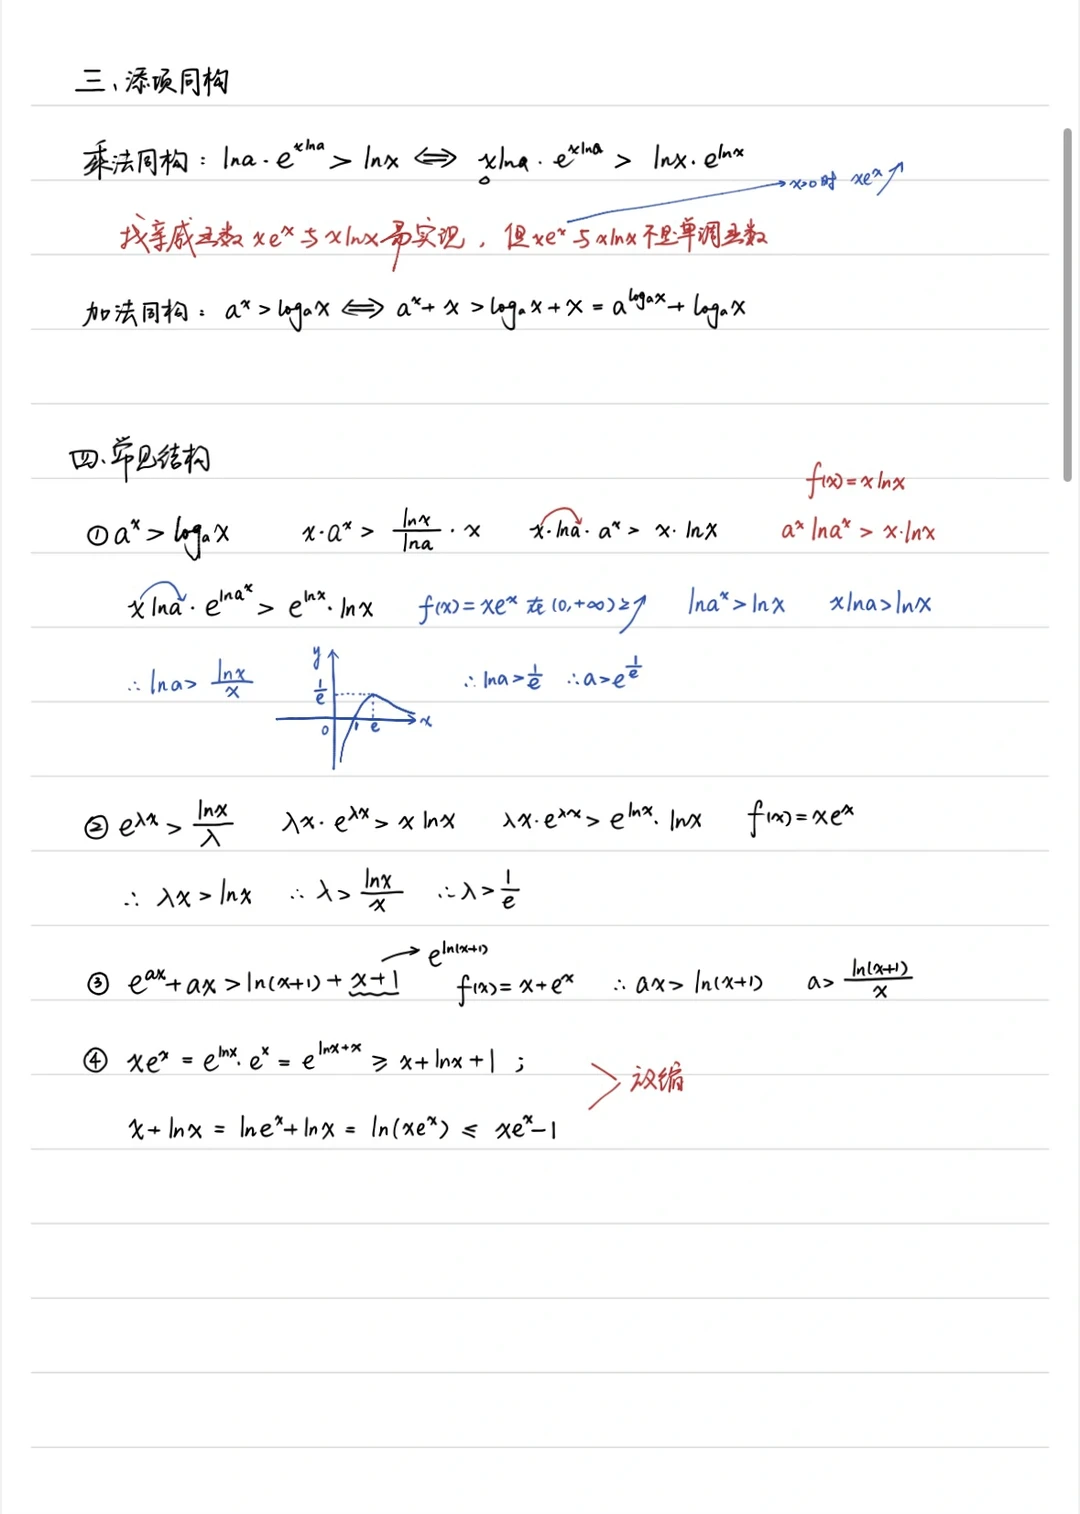 三、添项同构
乘法同构：lna·e^{xlna} > lnx ⟺ xlna·e^{xlna} > lnx·e^{lnx}
→x>0时 xe^x↗
找亲戚函数 xe^x 与 xlnx 易实现，但 xe^x 与 xlnx 不是单调函数
加法同构：a^x > log_a x ⟺ a^x + x > log_a x + x = a^{log_a x} + log_a x
四、常见结构
f(x) = xlnx
① a^x > log_a x  x·a^x > \frac{lnx}{lna}·x  x·lna·a^x > x·lnx  a^x lna^x > x·lnx
xlna·e^{lna^x} > e^{lnx}·lnx  f(x) = xe^x 在(0,+∞)上↗  lna^x > lnx  xlna > lnx
∴ lna > \frac{lnx}{x}  y \frac{1}{e} 0 1 e x  ∴ lna > \frac{1}{e}  ∴ a > e^{\frac{1}{e}}
② e^{λx} > \frac{lnx}{λ}  λx·e^{λx} > xlnx  λx·e^{λx} > e^{lnx}·lnx  f(x) = xe^x
∴ λx > lnx  ∴ λ > \frac{lnx}{x}  ∴ λ > \frac{1}{e}
→ e^{ln(x+1)}
③ e^{ax} + ax > ln(x+1) + x+1  f(x) = x + e^x  ∴ ax > ln(x+1)  a > \frac{ln(x+1)}{x}
④ xe^x = e^{lnx}·e^x = e^{lnx+x} ≥ x + lnx + 1；
放缩
x + lnx = lne^x + lnx = ln(xe^x) ≤ xe^x − 1